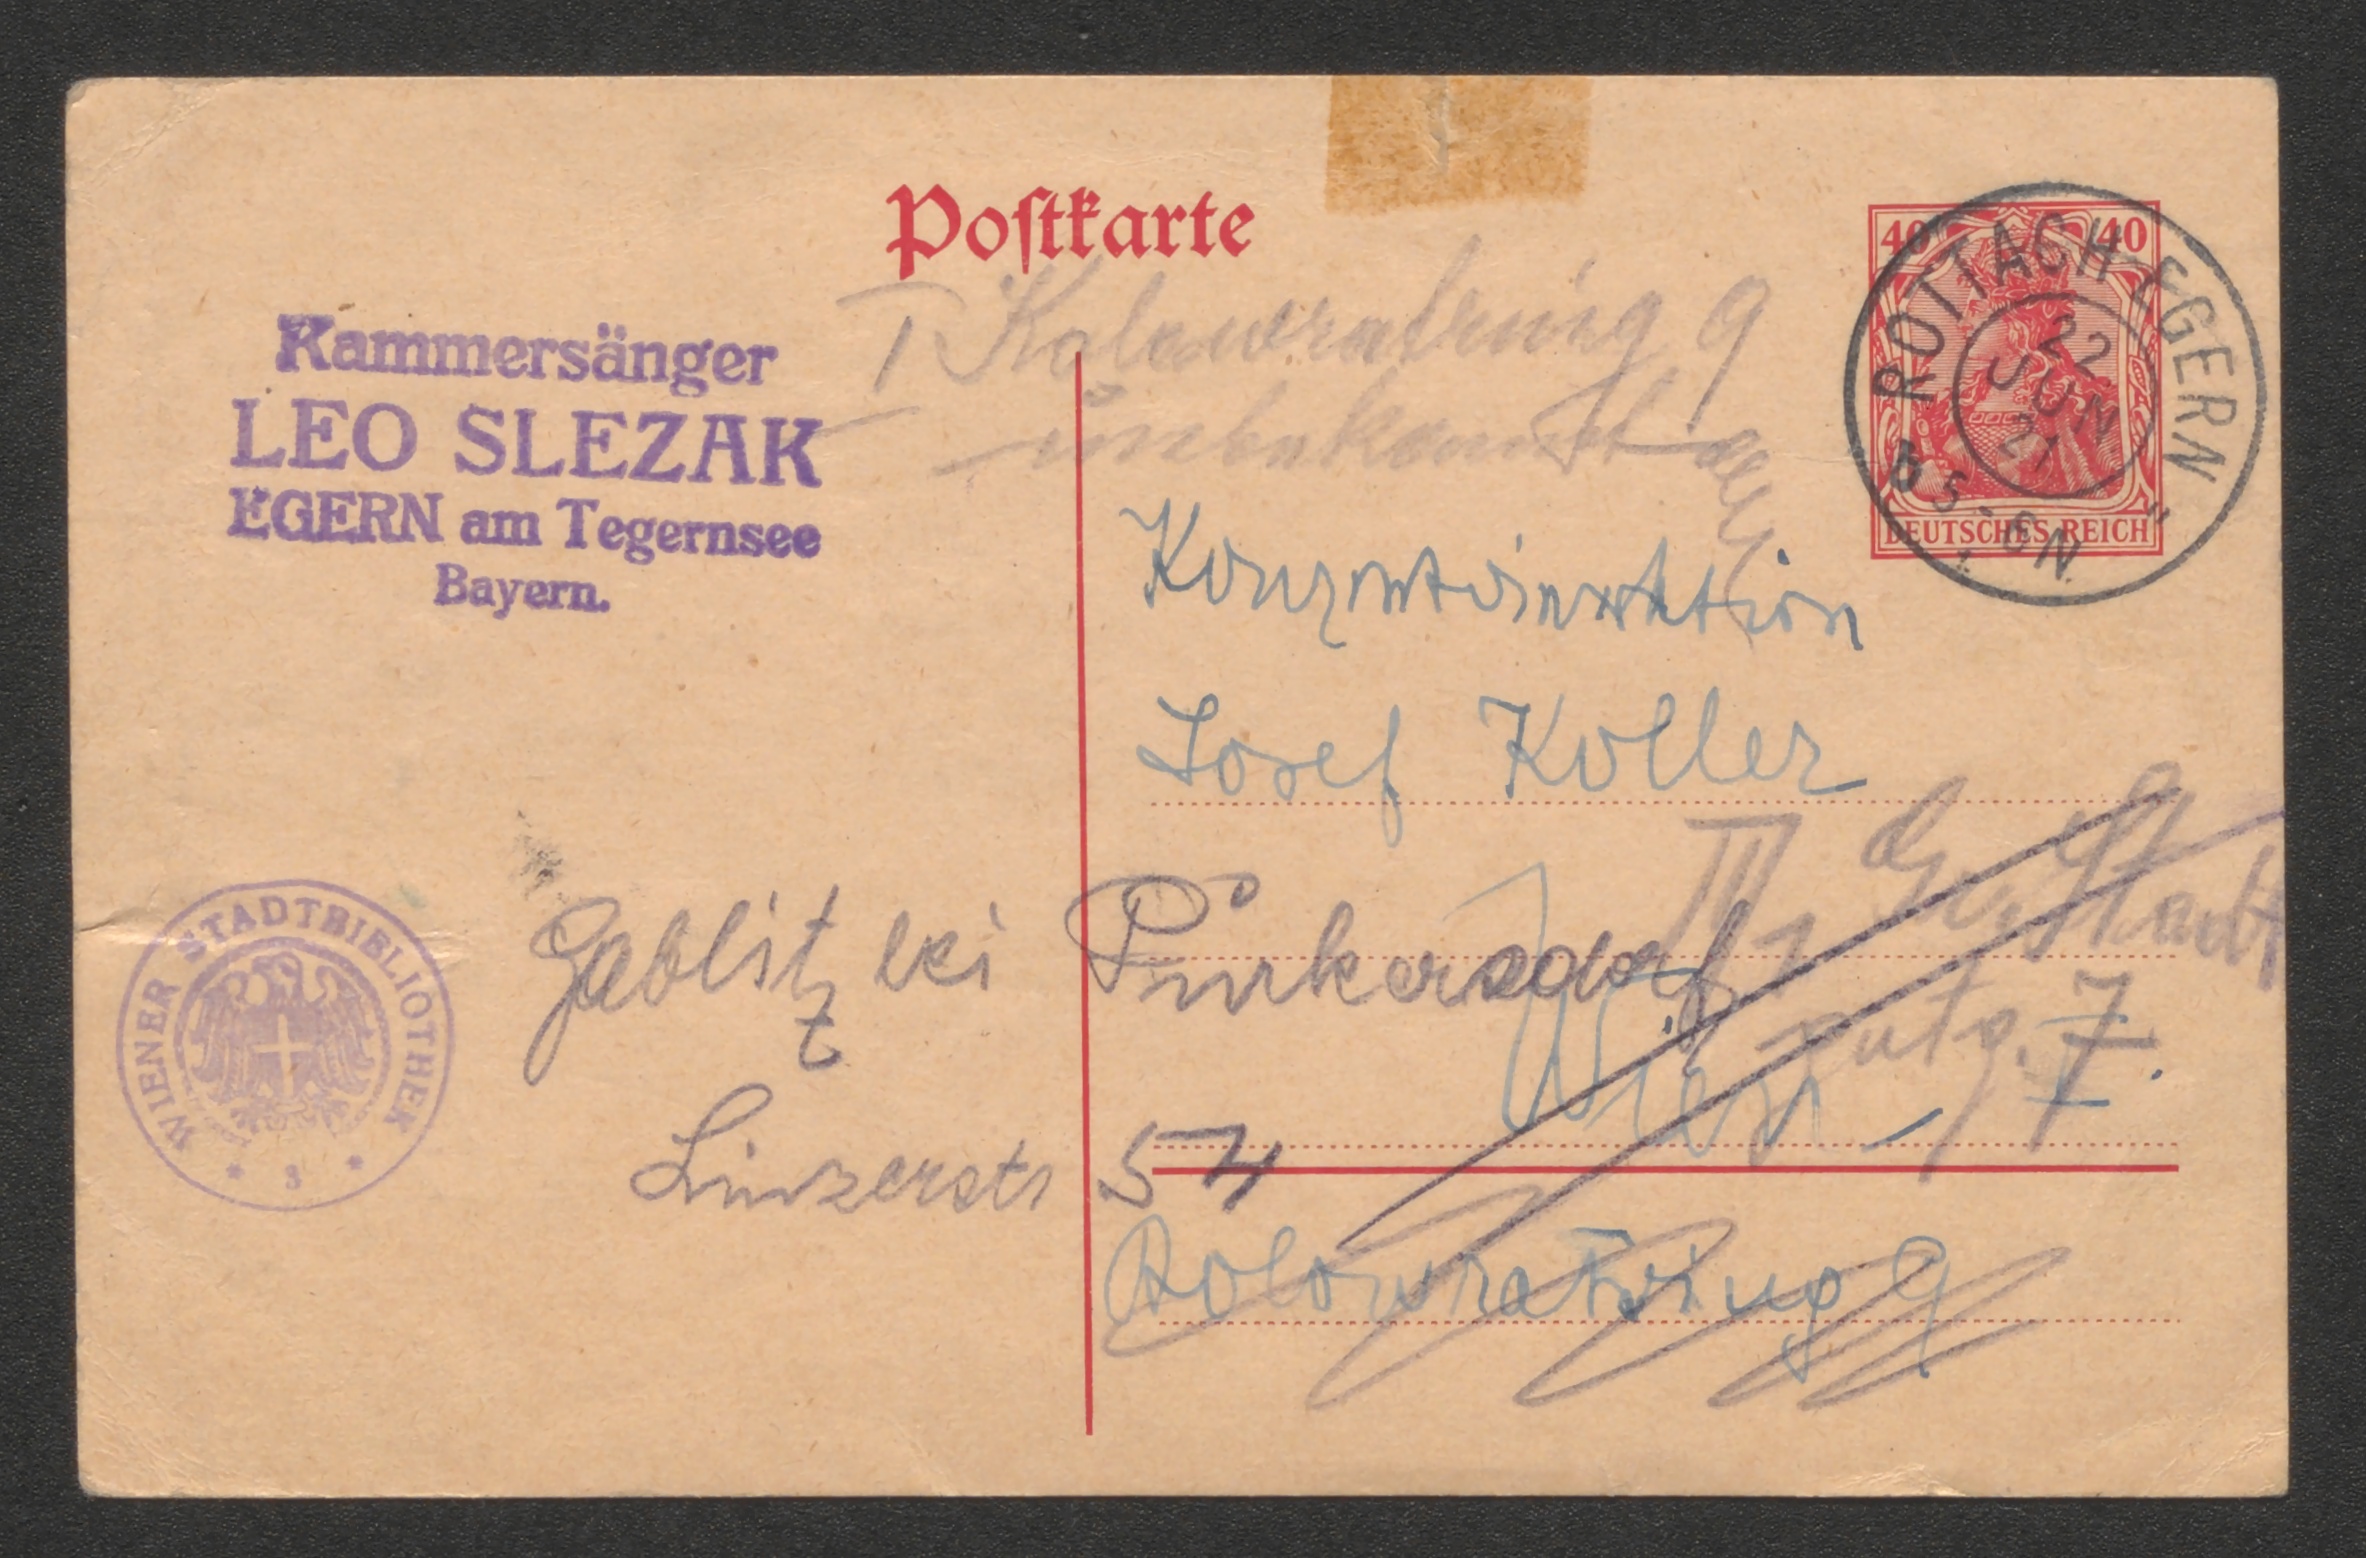 Postkarte
40 40
DEUTSCHES REICH
ROTTACH-EGERN
22 JUN 21
b 5-6 N
Kammersänger
LEO SLEZAK
EGERN am Tegernsee
Bayern.
I Kolowratring 9
unbekannt
Konzertdirektion
Josef Koller
Wien I
Kolowratring 9
Gablitz bei Purkersdorf
Linzerstr 54
7
WIENER STADTBIBLIOTHEK
* 3 *